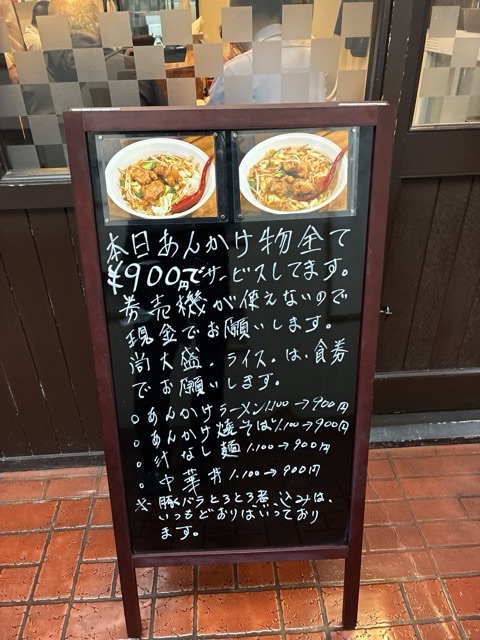 本日あんかけ物全て
¥900円でサービスしてます。
券売機が使えないので
現金でお願いします。
尚大盛、ライス、は、食券
でお願いします。
○あんかけラーメン1.100→900円
○あんかけ焼そば1.100→900円
○汁なし麺 1.100→900円
○中華丼 1.100→900円
※豚バラとろとろ煮込みは、
いつもどおりはいっており
ます。